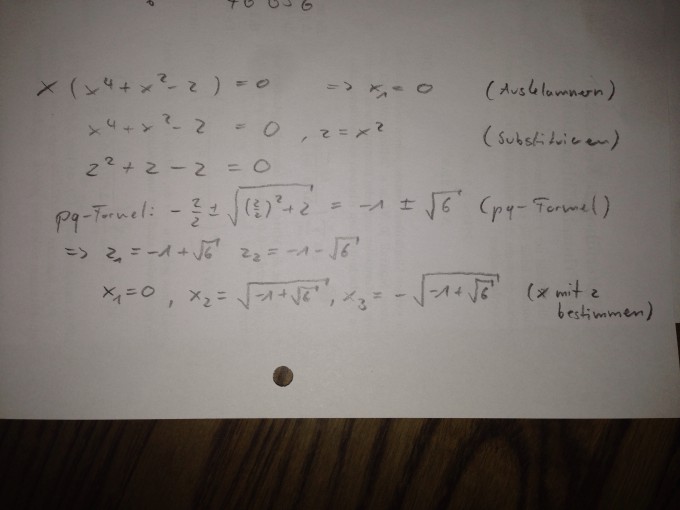 70 056
x (x⁴ + x² - 2) = 0 => x₁ = 0 (Ausklammern)
x⁴ + x² - 2 = 0, z = x² (Substituieren)
z² + z - 2 = 0
pq-Formel: - 2/2 ± √((2/2)² + 2) = -1 ± √6 (pq-Formel)
=> z₁ = -1 + √6 z₂ = -1 - √6
x₁ = 0, x₂ = √(-1 + √6), x₃ = - √(-1 + √6) (x mit z
bestimmen)